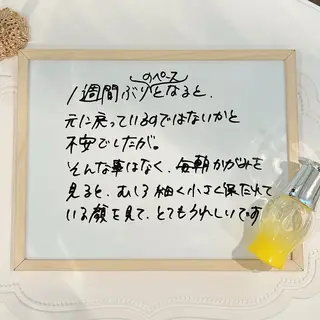 1週間ぶりのペースとなると、
元に戻っているのではないかと
不安でしたが。
そんな事はなく、毎朝かがみを
見ると、むしろ細く小さく保たれて
いる顔を見て、とてもうれしいです